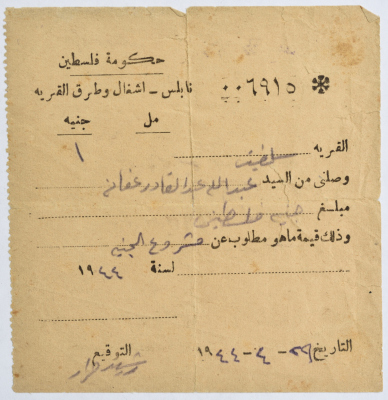 حكومة فلسطين
نابلس - اشغال وطرق القريه
٠٠٦٩١٥
مل جنيه
١
القريه سلفيت
وصلني من السيد عبد الله عبد القادر عفانه
مبلغ جنيه فلسطيني
وذلك قيمة ما هو مطلوب عن مشروع
لسنة ١٩٤٤
التاريخ ٢٦-٤-١٩٤٤
التوقيع